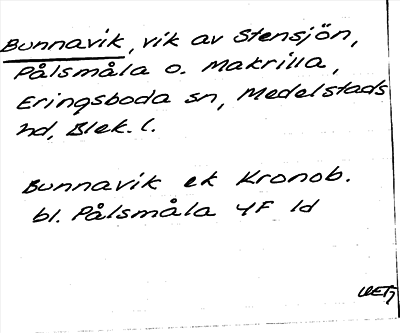 Bunnavik, vik av Stensjön,
Pålsmåla o. Makrilla,
Eringsboda sn, Medelstads
hd, Blek. l.
Bunnavik ek Kronob.
bl. Pålsmåla 4F 1d